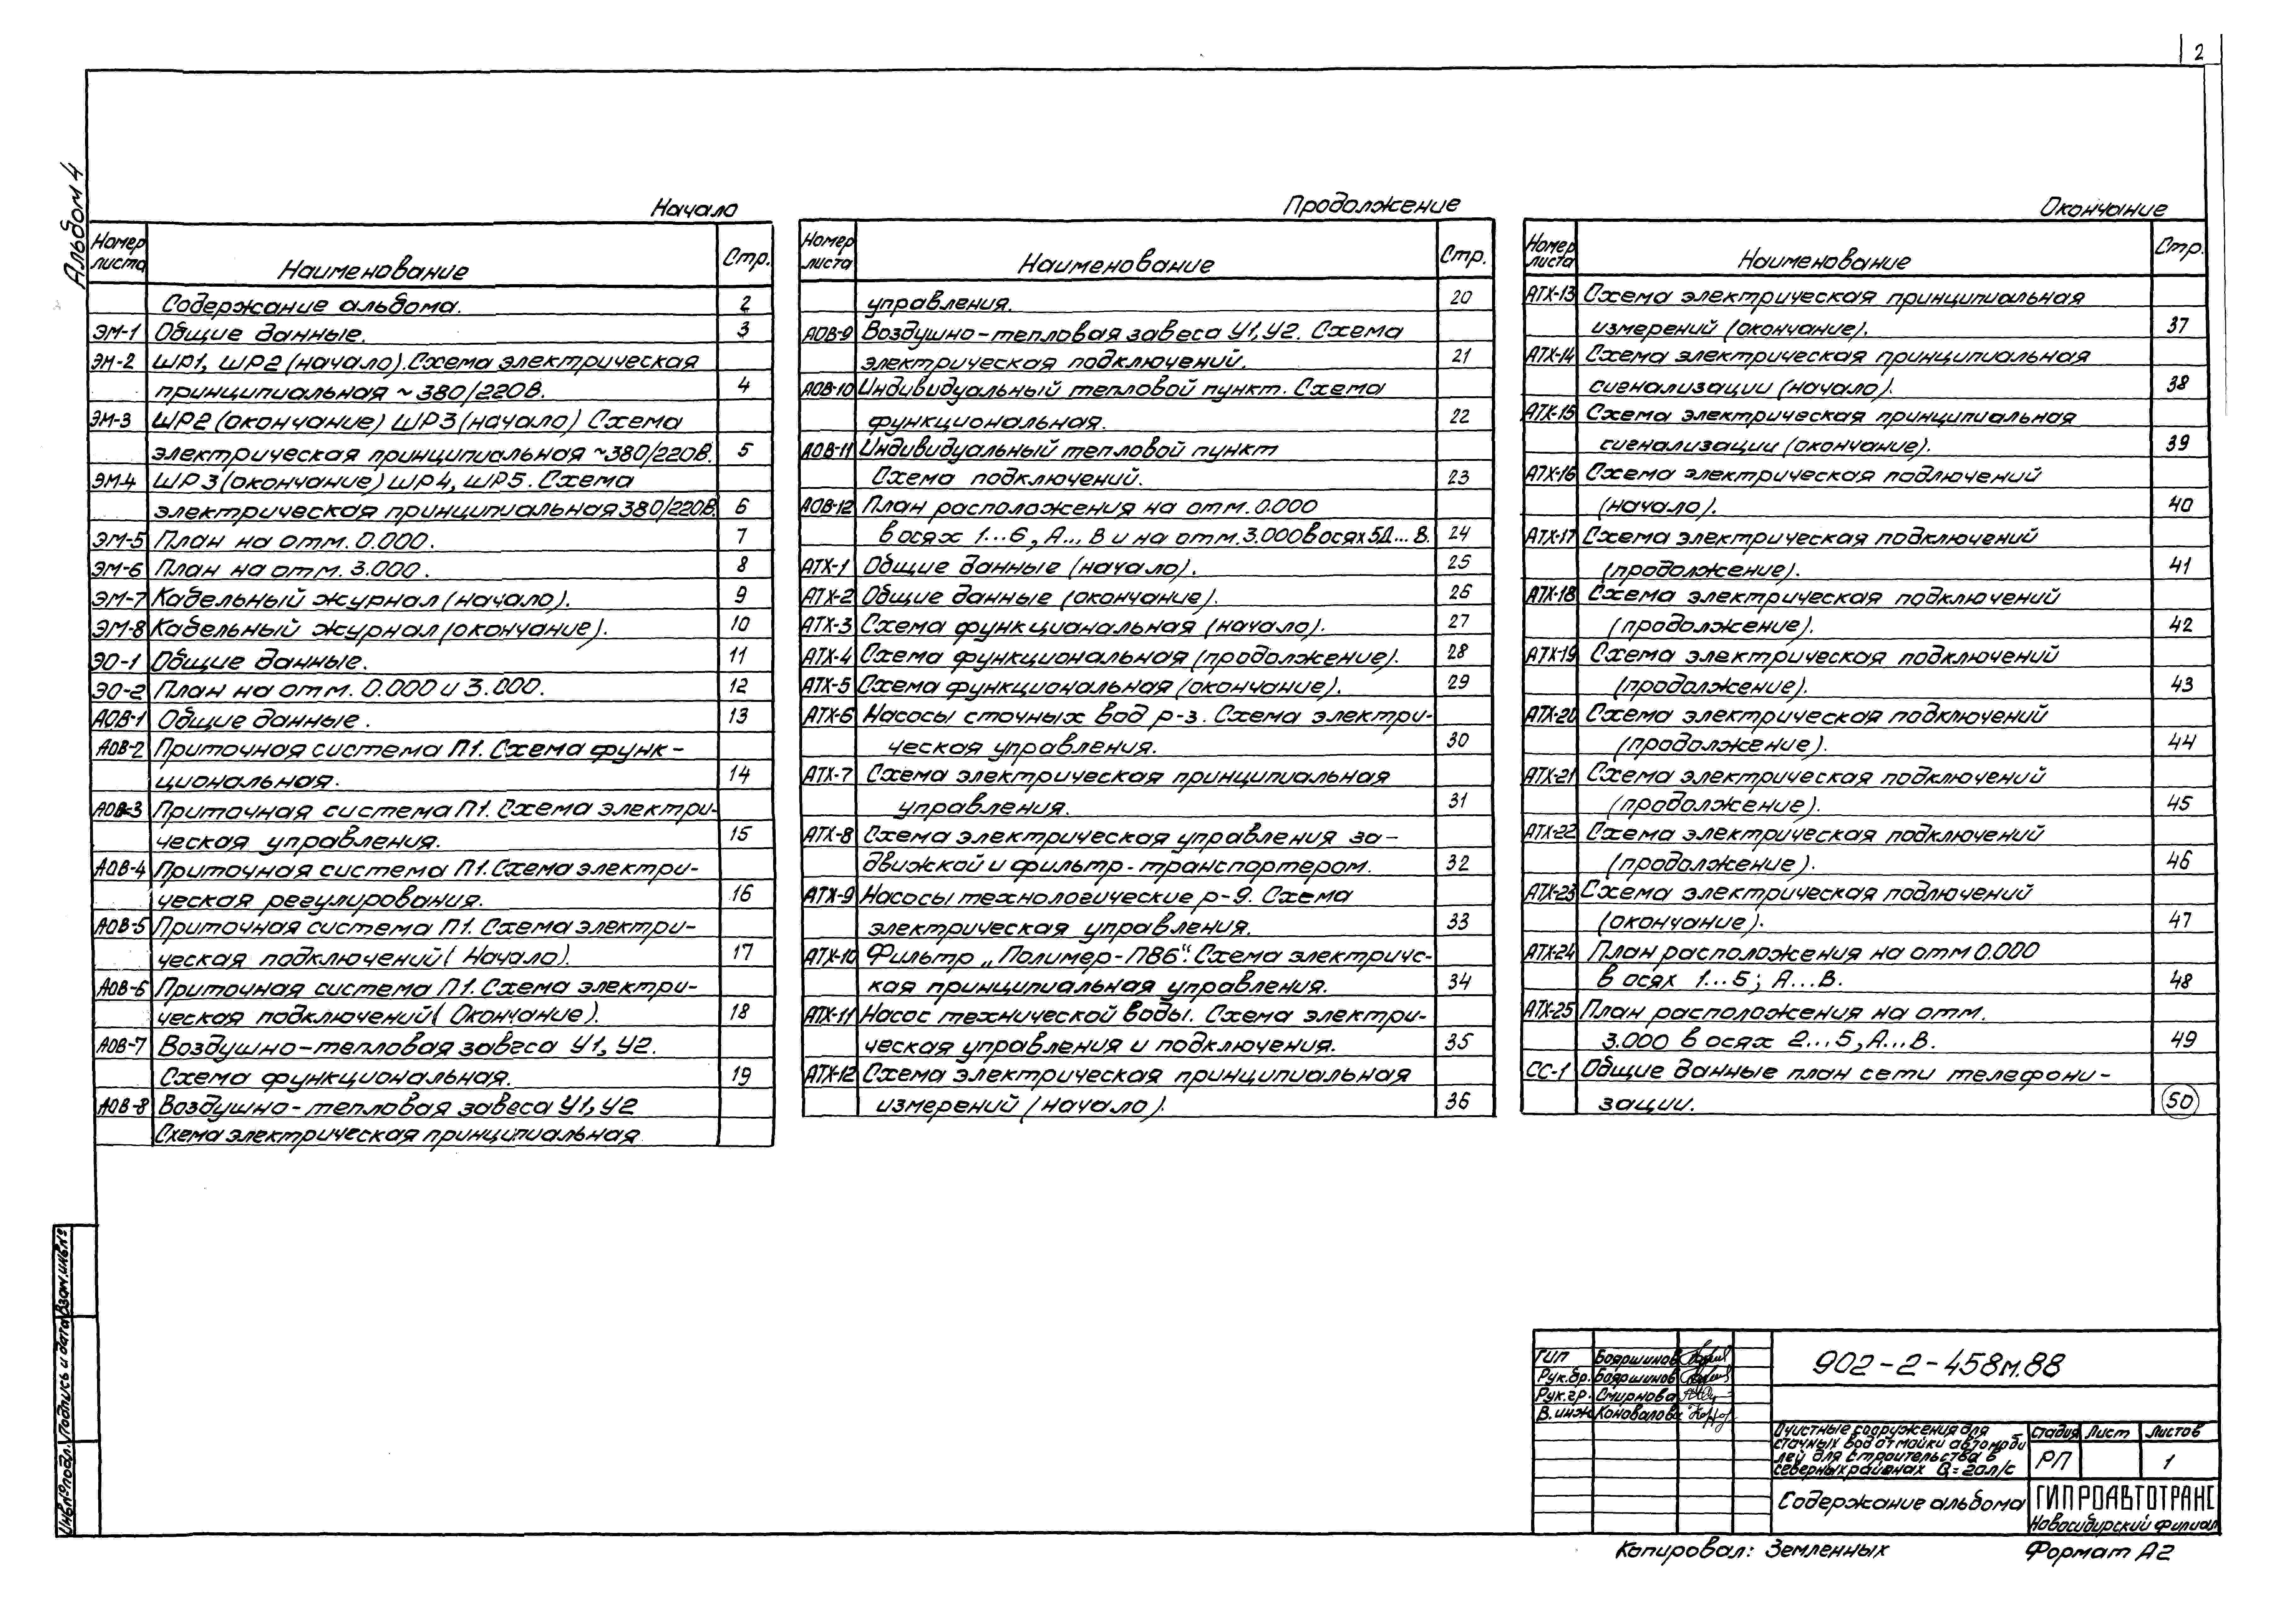 2
Альбом 4
Начало
Номер листа Наименование Стр.
Содержание альбома. 2
ЭМ-1 Общие данные. 3
ЭМ-2 ШР1, ШР2 (начало). Схема электрическая
принципиальная ~ 380/220В. 4
ЭМ-3 ШР2 (окончание) ШР3 (начало) Схема
электрическая принципиальная ~380/220В. 5
ЭМ-4 ШР3 (окончание) ШР4, ШР5. Схема
электрическая принципиальная 380/220В. 6
ЭМ-5 План на отм. 0.000. 7
ЭМ-6 План на отм. 3.000. 8
ЭМ-7 Кабельный журнал (начало). 9
ЭМ-8 Кабельный журнал (окончание). 10
ЭО-1 Общие данные. 11
ЭО-2 План на отм. 0.000 и 3.000. 12
АОВ-1 Общие данные. 13
АОВ-2 Приточная система П1. Схема функ-
циональная. 14
АОВ-3 Приточная система П1. Схема электри-
ческая управления. 15
АОВ-4 Приточная система П1. Схема электри-
ческая регулирования. 16
АОВ-5 Приточная система П1. Схема электри-
ческая подключений (Начало). 17
АОВ-6 Приточная система П1. Схема электри-
ческая подключений (Окончание). 18
АОВ-7 Воздушно-тепловая завеса У1, У2.
Схема функциональная. 19
АОВ-8 Воздушно-тепловая завеса У1, У2
Схема электрическая принципиальная
Продолжение
Номер листа Наименование Стр.
управления. 20
АОВ-9 Воздушно-тепловая завеса У1, У2. Схема
электрическая подключений. 21
АОВ-10 Индивидуальный тепловой пункт. Схема
функциональная. 22
АОВ-11 Индивидуальный тепловой пункт
Схема подключений. 23
АОВ-12 План расположения на отм. 0.000
в осях 1...6, А... В и на отм. 3.000 в осях 5Д... В. 24
АТХ-1 Общие данные (начало). 25
АТХ-2 Общие данные (окончание). 26
АТХ-3 Схема функциональная (начало). 27
АТХ-4 Схема функциональная (продолжение). 28
АТХ-5 Схема функциональная (окончание). 29
АТХ-6 Насосы сточных вод р-з. Схема электри-
ческая управления. 30
АТХ-7 Схема электрическая принципиальная
управления. 31
АТХ-8 Схема электрическая управления за-
движкой и фильтр-транспортером. 32
АТХ-9 Насосы технологические р-9. Схема
электрическая управления. 33
АТХ-10 Фильтр „Полимер-П86“. Схема электричс-
кая принципиальная управления. 34
АТХ-11 Насос технической воды. Схема электри-
ческая управления и подключения. 35
АТХ-12 Схема электрическая принципиальная
измерений (начало). 36
Окончание
Номер листа Наименование Стр.
АТХ-13 Схема электрическая принципиальная
измерений (окончание). 37
АТХ-14 Схема электрическая принципиальная
сигнализации (начало). 38
АТХ-15 Схема электрическая принципиальная
сигнализации (окончание). 39
АТХ-16 Схема электрическая подключений
(начало). 40
АТХ-17 Схема электрическая подключений
(продолжение). 41
АТХ-18 Схема электрическая подключений
(продолжение). 42
АТХ-19 Схема электрическая подключений
(продолжение). 43
АТХ-20 Схема электрическая подключений
(продолжение). 44
АТХ-21 Схема электрическая подключений
(продолжение). 45
АТХ-22 Схема электрическая подключений
(продолжение). 46
АТХ-23 Схема электрическая подключений
(окончание). 47
АТХ-24 План расположения на отм 0.000
в осях 1...5; А...В. 48
АТХ-25 План расположения на отм.
3.000 в осях 2...5, А...В. 49
СС-1 Общие данные план сети телефони-
зации. 50
Инв.№ подл. Подпись и дата Взам.инв.№
ГИП Бояршинов
Рук.бр. Бояршинов
Рук.гр. Смирнова
В.инж Коновалов
902-2-458м.88
Очистные сооружения для
сточных вод от мойки автомоби
лей для строительства в
северных районах Q=20л/с
Стадия Лист Листов
РП 1
Содержание альбома
ГИПРОАВТОТРАНС
Новосибирский филиал
Копировал: Земленных Формат А2